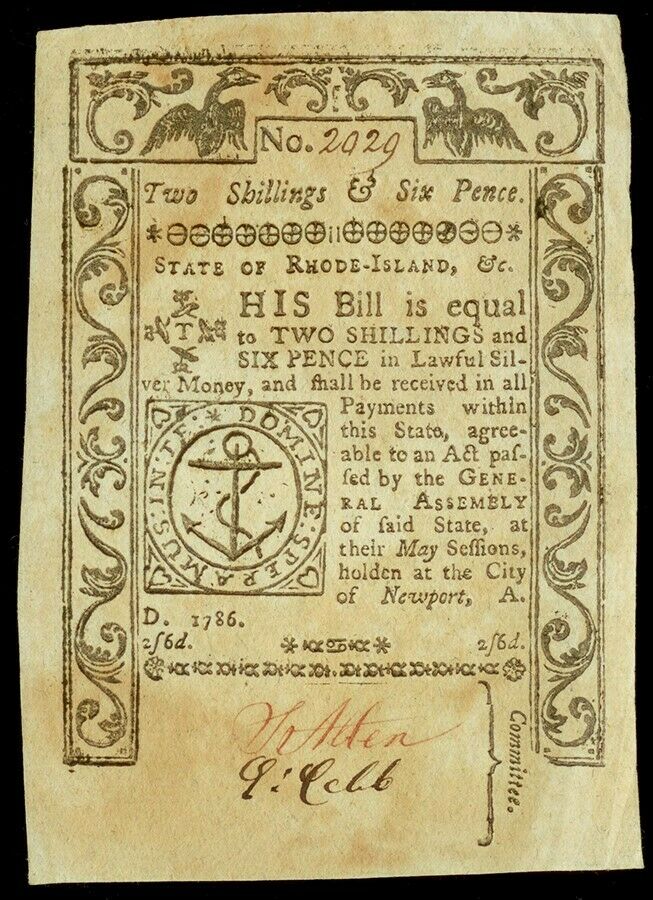 No. 2029
Two Shillings & Six Pence.
STATE OF RHODE-ISLAND, &c.
THIS Bill is equal
to TWO SHILLINGS and
SIX PENCE in Lawful Sil-
ver Money, and ſhall be received in all
Payments within
this State, agree-
able to an Act paſ-
ſed by the GENE-
RAL ASSEMBLY
of ſaid State, at
their May Seſſions,
holden at the City
of Newport, A.
D. 1786.
IN:TE * DOMINE:SPERAMUS:
2ſ6d. 2ſ6d.
Committee.